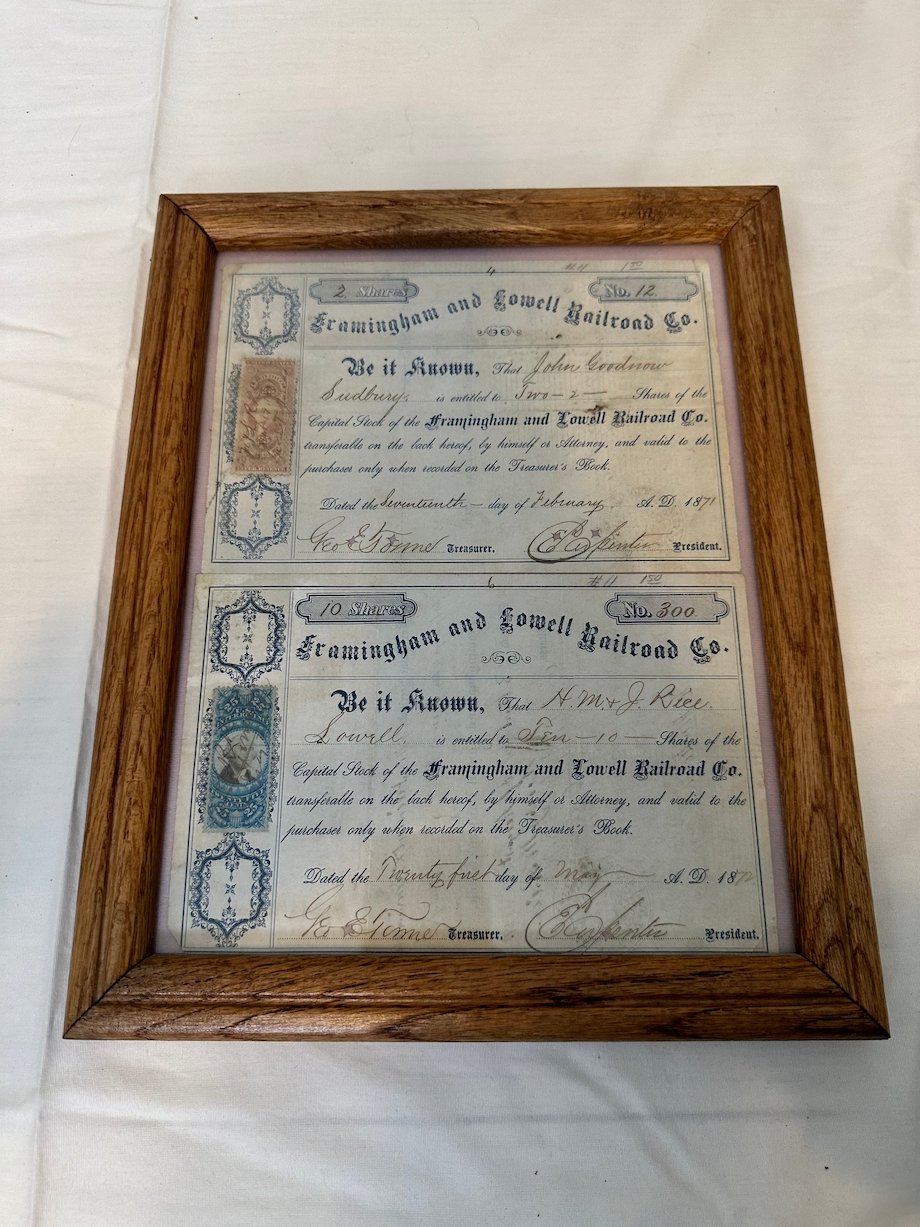 4 #11 1.50
2 Shares No. 12
Framingham and Lowell Railroad Co.
Be it Known, That John Goodnow
Sudbury, is entitled to Two - 2 - Shares of the
Capital Stock of the Framingham and Lowell Railroad Co.
transferable on the back hereof, by himself or Attorney, and valid to the
purchaser only when recorded on the Treasurer's Book.
Dated the Seventeenth - day of February A. D. 1871
Geo E Towne Treasurer. President.
6 #11 1.50
10 Shares No. 300
Framingham and Lowell Railroad Co.
Be it Known, That H. M. & J. Rice.
Lowell. is entitled to Ten - 10 - Shares of the
25 25
Capital Stock of the Framingham and Lowell Railroad Co.
transferable on the back hereof, by himself or Attorney, and valid to the
purchaser only when recorded on the Treasurer's Book.
Dated the Twenty first day of May A. D. 187
Geo E Towne Treasurer. President.